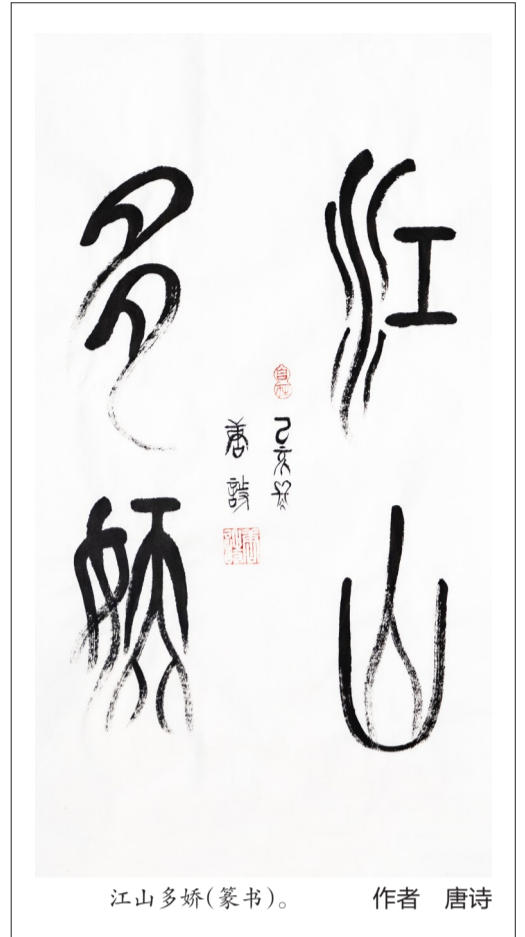 江山
多娇
己亥
唐诗
江山多娇(篆书)。 作者 唐诗